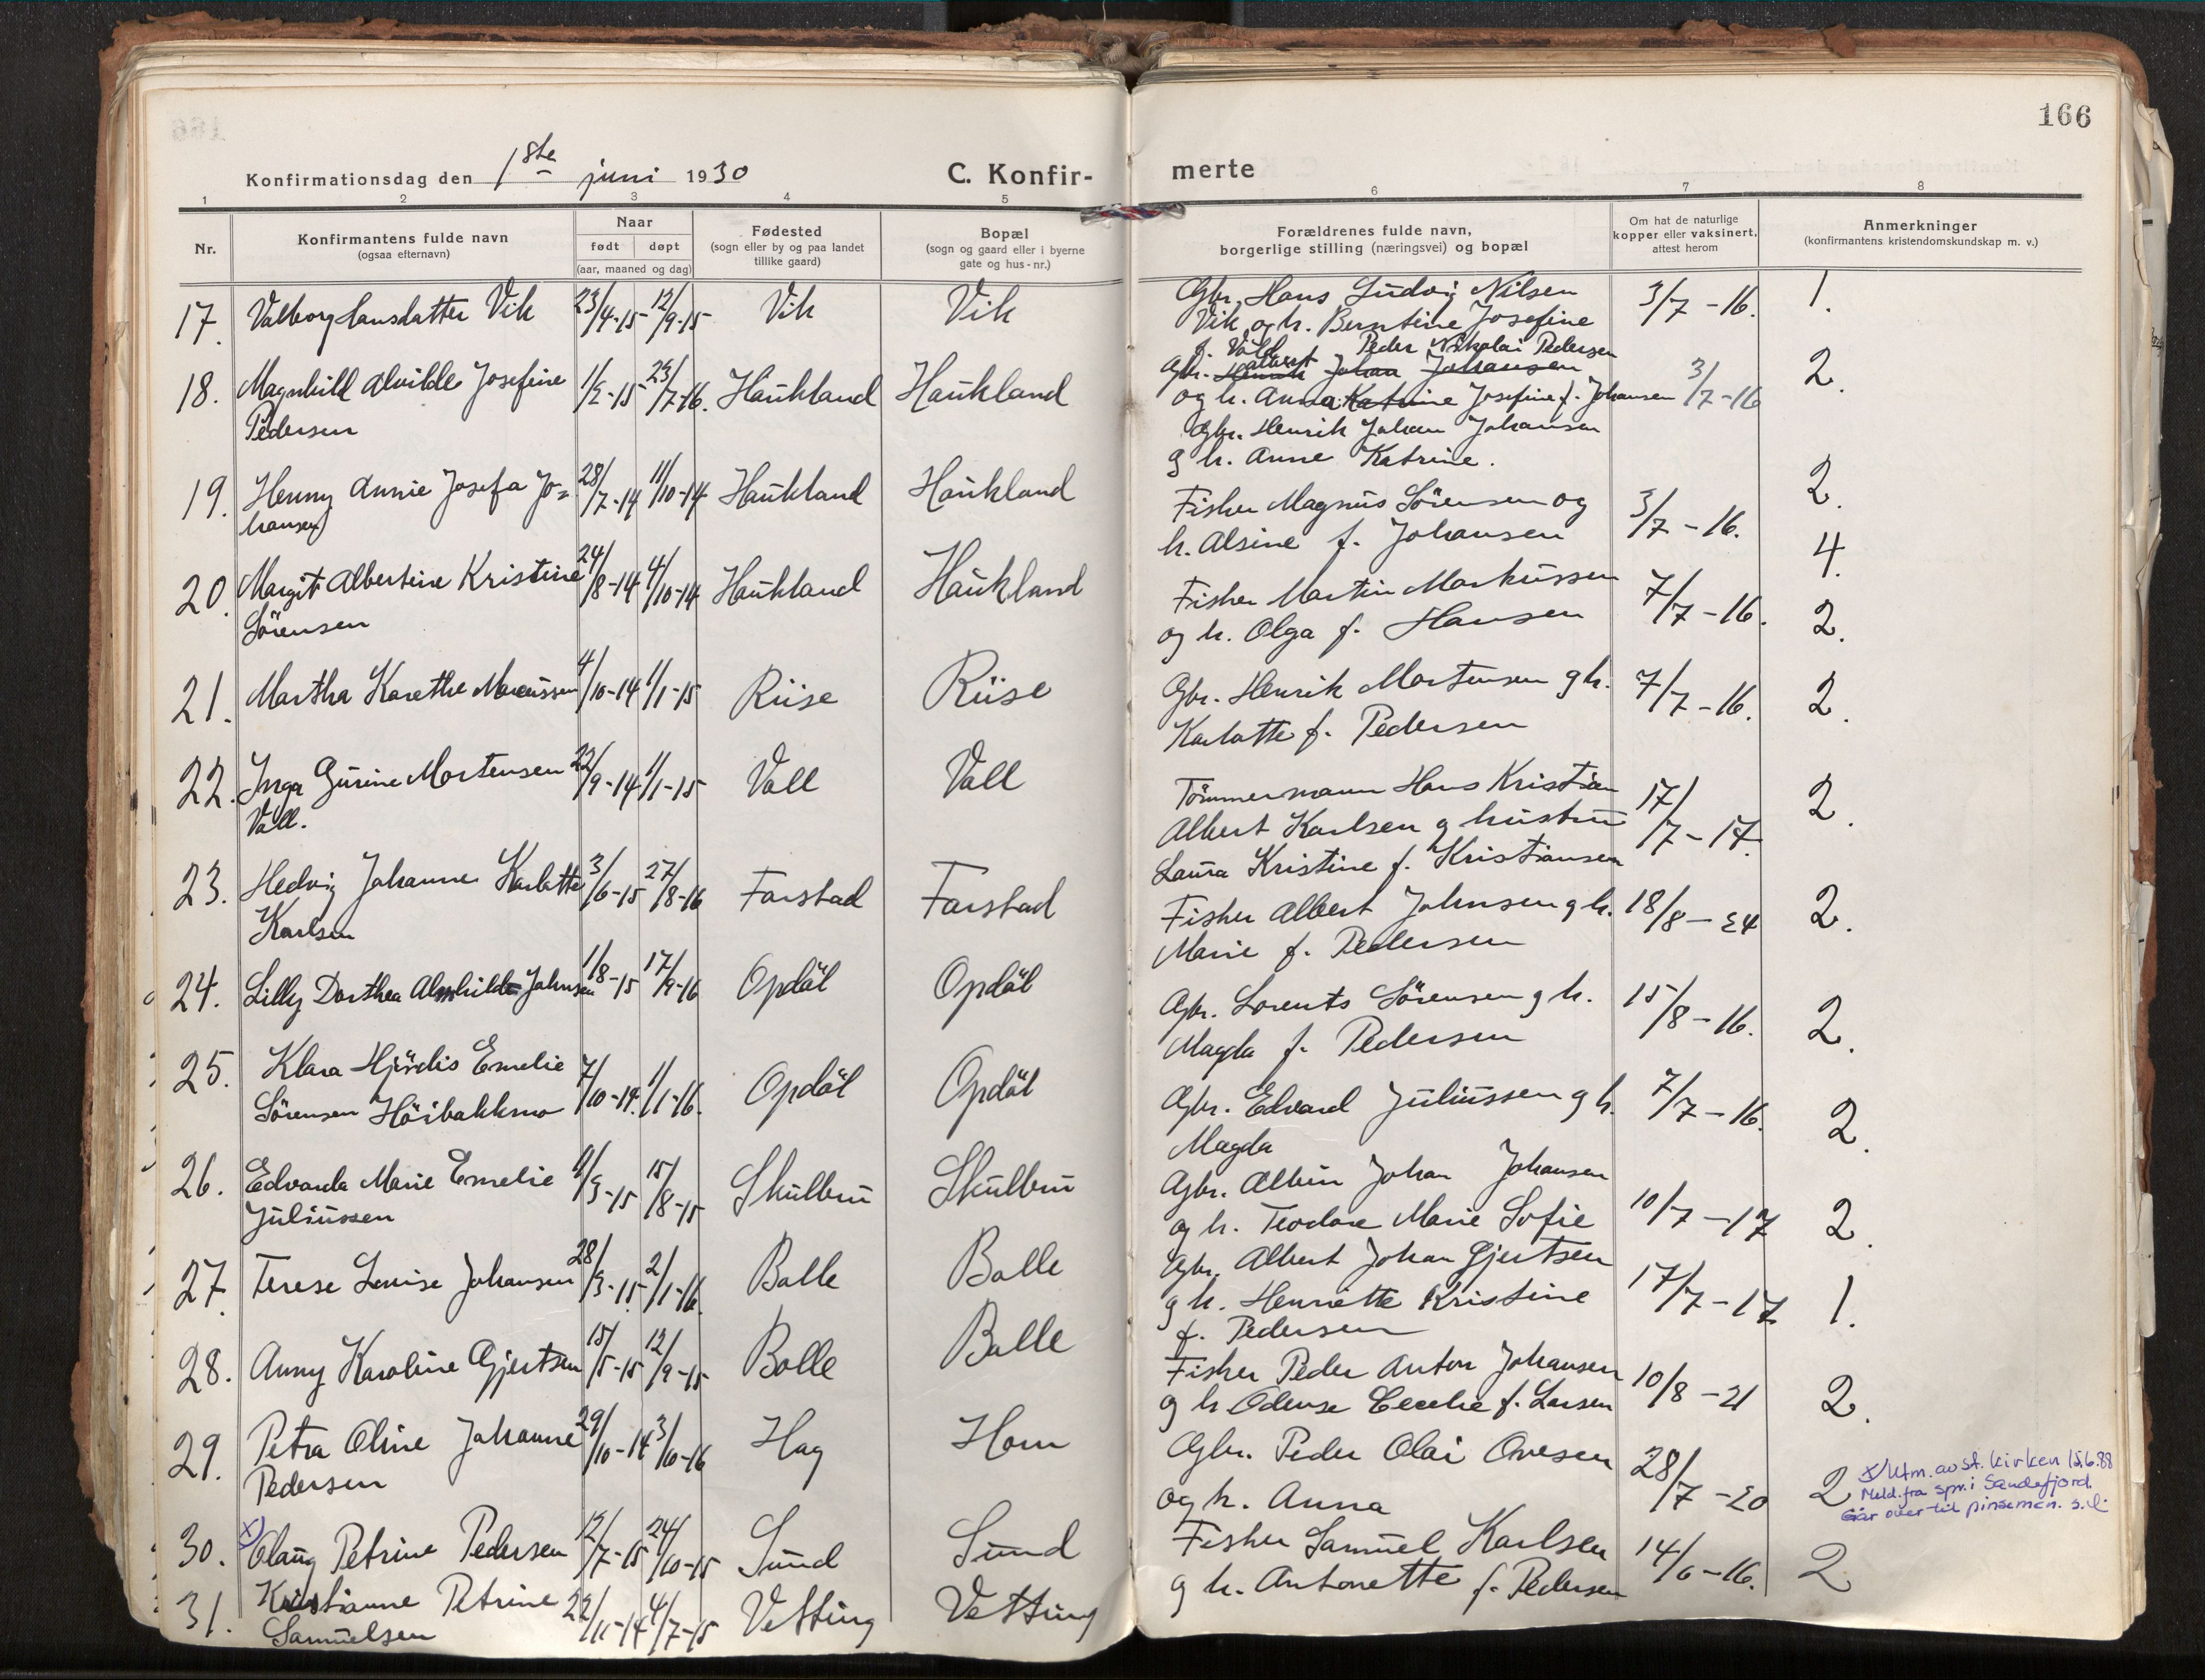 166
Konfirmationsdag den 1ste juni 1930
C. Konfir-
merte
1 2 3 4 5 6 7 8
Nr.
Konfirmantens fulde navn
(ogsaa efternavn)
Naar
født døpt
(aar, maaned og dag)
Fødested
(sogn eller by og paa landet
tillike gaard)
Bopæl
(sogn og gaard eller i byerne
gate og hus-nr.)
Forældrenes fulde navn,
borgerlige stilling (næringsvei) og bopæl
Om hat de naturlige
kopper eller vaksinert,
attest herom
Anmerkninger
(konfirmantens kristendomskundskap m. v.)
17. Valborg Hansdatter Vik 23/4-15 12/9-15 Vik Vik
18. Magnhild Alvilde Josefine 1/2-15 23/7-16. Haukland Haukland
Pedersen
19. Henny Annie Josefa Jo= 28/7-14 11/10-14 Haukland Haukland
hansen
20. Margit Albertine Kristine 24/8-14 4/10-14 Haukland Haukland
Sörensen
21. Martha Karethe Marcussen 4/10-14 1/1-15 Rüse Rüse
22. Inga Gurine Mortensen 22/9-14 1/1-15 Vall Vall
Vall.
23. Hedvig Johanne Karlotte 3/6-15 27/8-16 Farstad Farstad
Karlsen
24. Lilly Dorthea Almhilde Johnsen 1/8-15 17/9-16 Opdöl Opdöl
25. Klara Hjördis Emelie 7/10-14. 1/1-16. Opdöl Opdöl
Sörensen Höibakkmo
26. Edvarda Marie Emelie 11/3-15 15/8-15 Skulbru Skulbru
Juliussen
27. Terese Lovise Johansen 28/3-15. 2/1-16. Bolle Bolle
28. Anny Karoline Gjertsen 15/5-15 12/9-15 Bolle Bolle
29. Petra Oline Johanne 29/10-14 3/10-16 Hag Hom
Pedersen
30. x) Olaug Petrine Pedersen 12/7-15 24/10-15 Sund Sund
31. Kristianne Petrine 22/11-14 4/7-15 Vetting Vetting
Samuelsen
Gbr. Hans Ludvig Nilsen 3/7-16. 1.
Vik og h. Berntine Josefine
f. Vold Peder Nikolai Pedersen
Gbr. Henrik Johan Johansen 2.
og h. Anna Katrine Josefine f. Johansen 3/7-16
Gbr. Henrik Johan Johansen
g h. Anne Katrine. 2.
Fisker Magnus Sörensen og 3/7-16.
h. Alsine f. Johansen 4.
Fisker Martin Markussen 7/7-16.
og h. Olga f. Hansen 2.
Gbr. Henrik Mortensen g h. 7/7-16. 2.
Karlotte f. Pedersen
Tömmermann Hans Kristian 17/7-17. 2.
Albert Karlsen g hustru
Laura Kristine f. Kristiansen
Fisker Albert Johnsen g h. 18/8-24 2.
Marie f. Pedersen
Gbr. Lorents Sörensen g h. 15/8-16. 2.
Magda f. Pedersen
Gbr. Edvard Juliussen g h. 7/7-16. 2.
Magda
Gbr. Albin Johan Johansen
og h. Teodore Marie Sofie 10/7-17 2.
Gbr. Albert Johan Gjertsen
g h. Henriette Kristine 17/7-17 1.
f. Pedersen
Fisker Peder Anton Johansen 10/8-21 2.
g h Odense Cecelie f. Larsen
Gbr. Peder Olai Ovesen 28/7-20 2
og h. Anna
x) Utm. av st. kirken 15.6.88
Meld. fra spr. i Sandefjord.
Går over til pinsemen. s.d.
Fisker Samuel Karlsen 14/6-16. 2
g h. Antonette f. Pedersen